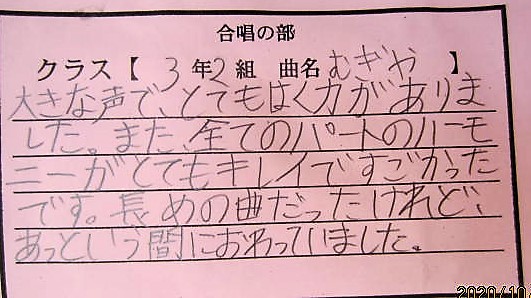 合唱の部
クラス【 3年2組 曲名 むぎや 】
大きな声で、とてもはく力がありま
した。また、全てのパートのハーモ
ニーがとてもキレイですごかった
です。長めの曲だったけれど、
あっという間におわっていました。